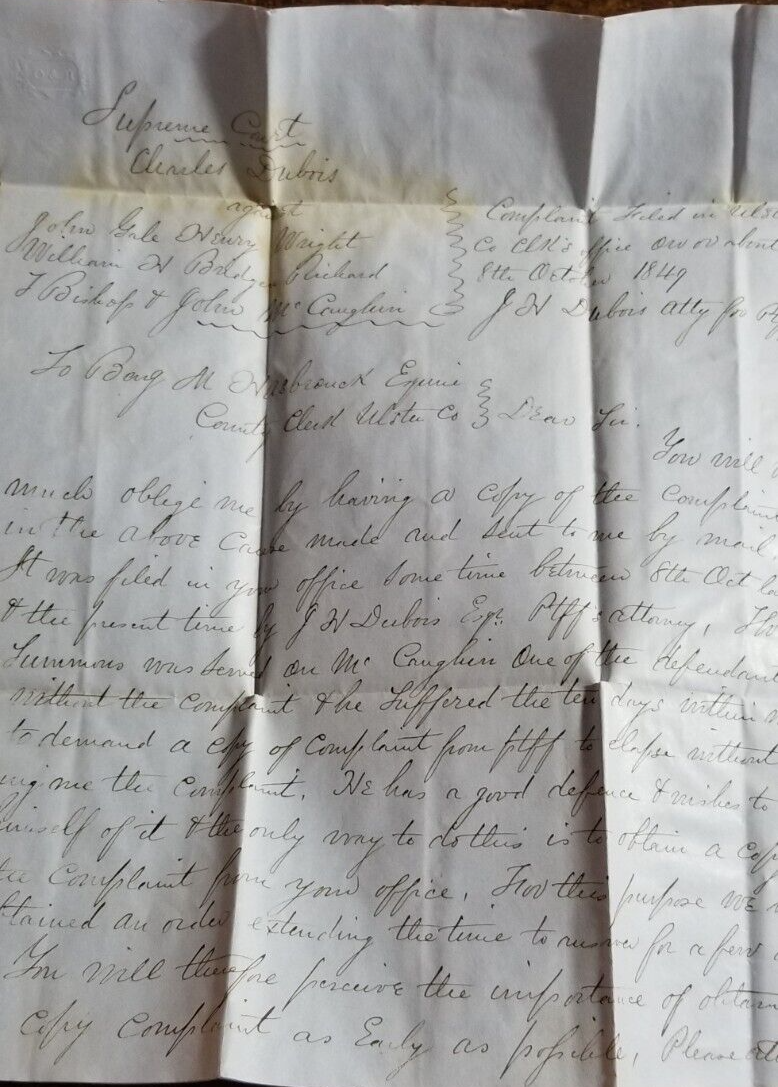 Supreme Court
Charles Dubois
against
John Gale Henry Wright
William H Bridger Richard
T Bishop & John McCaughin
Complaint Filed in Ulster
Co Clk's office on or about
8th October 1849
J H Dubois atty for Ptff
To Benj M Hasbrouck Esquire
County Clerk Ulster Co Dear Sir.
You will
much oblige me by having a copy of the Complaint
in the above Cause made and sent to me by mail
It was filed in your office some time between 8th Oct
& the present time by J H Dubois Esqr. Ptff's attorney, The
Summons was served on McCaughin One of the defendants
without the Complaint & he suffered the ten days within
to demand a copy of Complaint from ptff to elapse without
me the Complaint. He has a good defence & wishes to
himself of it & the only way to do this is to obtain a copy
the Complaint from your office, For this purpose we
an order extending the time to answer for a few
You will therefore perceive the importance of
copy Complaint as Early as possible, Please